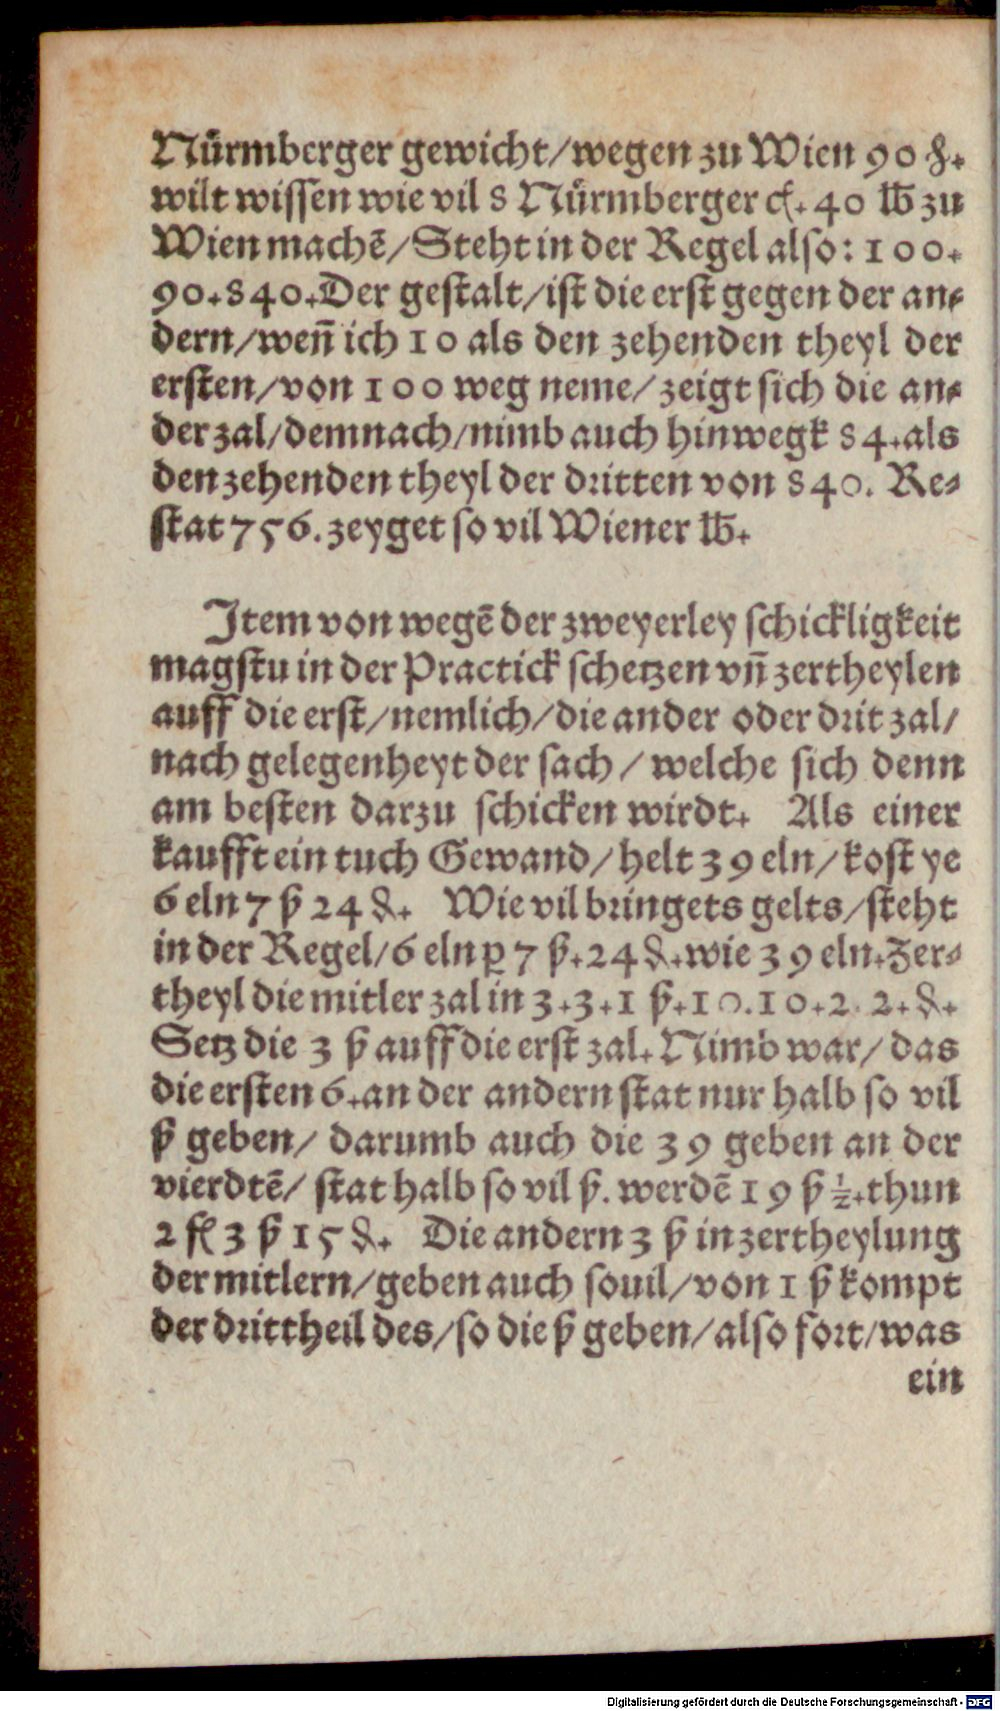 Nürmberger gewicht/wegen zu Wien 90 ℔.
wilt wissen wie vil 8 Nürmberger c. 40 ℔ zu
Wien machē/Steht in der Regel also: 100.
90.840.Der gestalt/ist die erst gegen der an-
dern/weñ ich 10 als den zehenden theyl der
ersten/von 100 weg neme/zeigt sich die an-
der zal/demnach/nimb auch hinwegk 84.als
den zehenden theyl der dritten von 840. Re-
stat 756.zeyget so vil Wiener ℔.
Item von wegē der zweyerley schickligkeit
magstu in der Practick schetzen vñ zertheylen
auff die erst/nemlich/die ander oder drit zal/
nach gelegenheyt der sach/welche sich denn
am besten darzu schicken wirdt. Als einer
kaufft ein tuch Gewand/helt 39 eln/kost ye
6 eln 7 ß 24 ₰. Wie vil bringets gelts/steht
in der Regel/6 eln ꝑ 7 ß.24 ₰.wie 39 eln.Zer-
theyl die mitler zal in 3.3.1 ß.10.10.2.2.₰.
Setz die 3 ß auff die erst zal.Nimb war/das
die ersten 6.an der andern stat nur halb so vil
ß geben/darumb auch die 39 geben an der
vierdtē/stat halb so vil ß.werdē 19 ß ½.thun
2 fl 3 ß 15 ₰. Die andern 3 ß in zertheylung
der mitlern/geben auch souil/von 1 ß kompt
der drittheil des/so die ß geben/also fort/was
ein
Digitalisierung gefördert durch die Deutsche Forschungsgemeinschaft - DFG